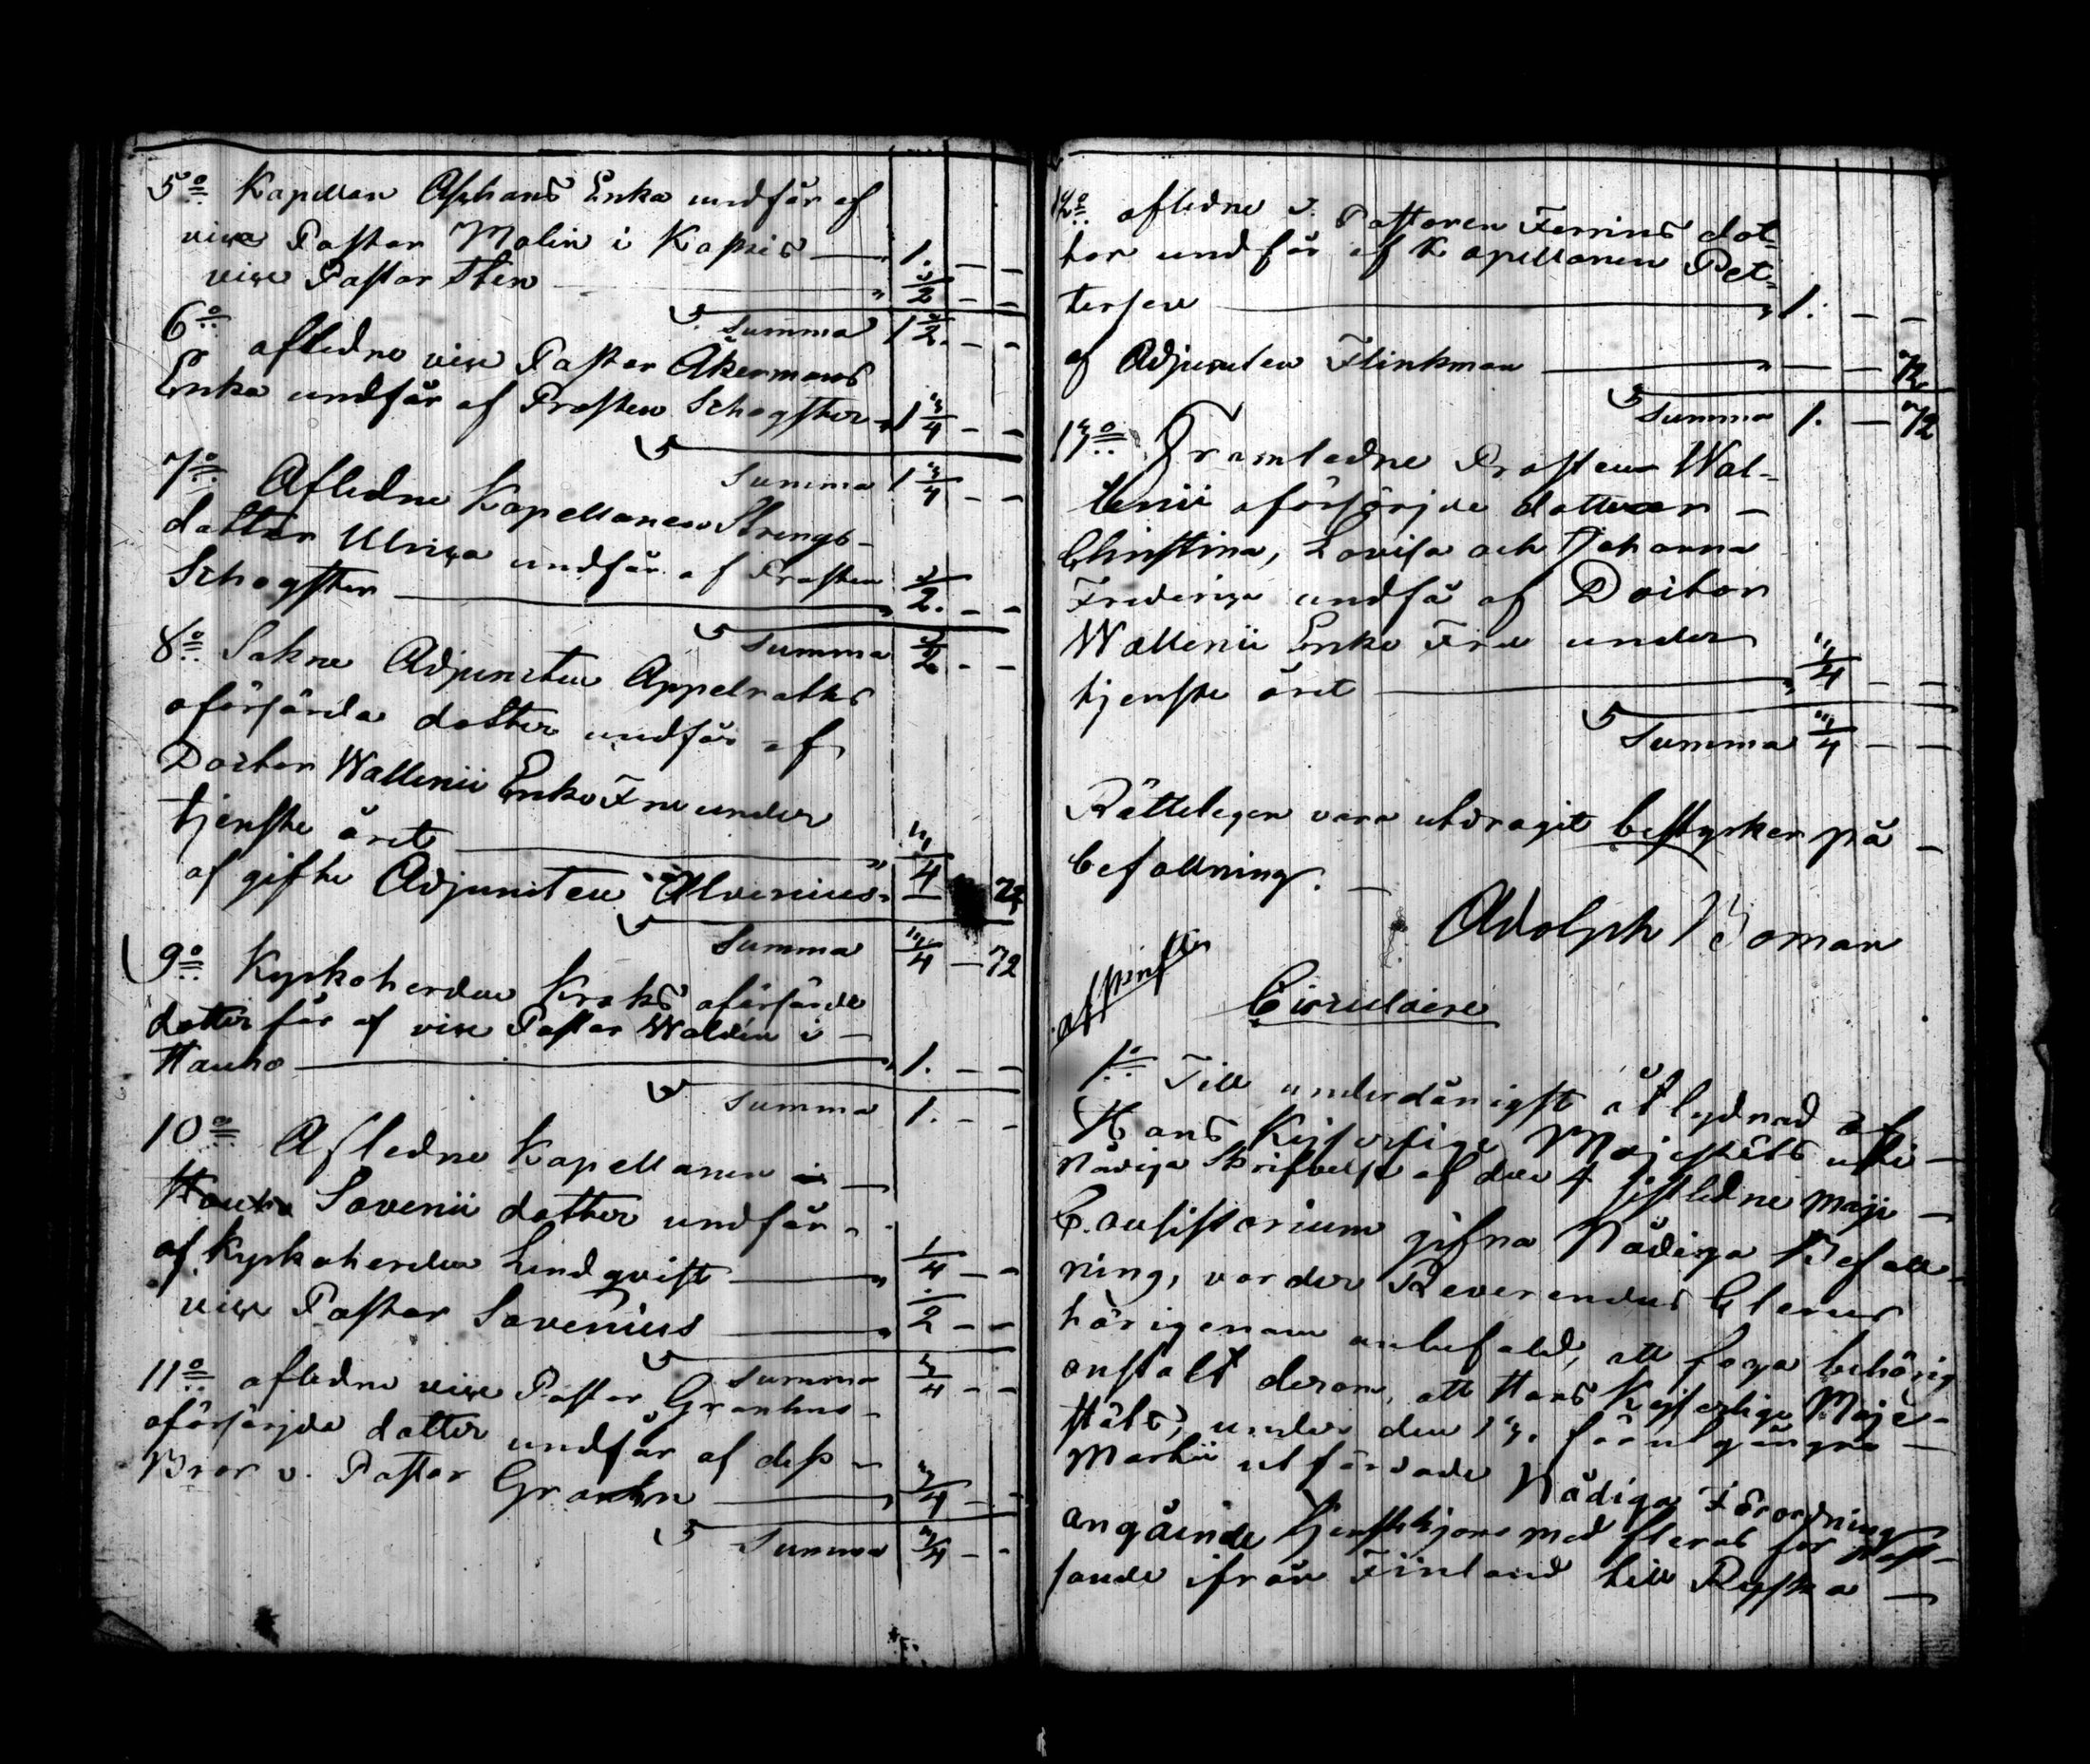 5:o Kapellan Alphans Enka undfår af
vice Pastor Molin i Kapis — 1. — —
vice Pastor Sten — 1/2 — —
Summa 1 1/2. — —
6:o afledne vice Pastor Åkermans
Enka undfår af Prosten Schogster 1 3/4 — —
Summa 1 3/4 — —
7:o Afledne Kapellanen Strengs
dotter Ulrica undfår af Prosten
Schogster — 1/2. — —
Summa 1/2 — —
8:o Sakne Adjuncten Appelroths
oförsörda dotter undfår af
Doctor Wallenii Enke Fru under
tjenste året — 3/4
af gifte Adjuncten Alvenius — — 72
Summa 3/4 — 72
9:o Kyrkoherden Kroks oförsörde
dotter får af vice Pastor Waldén i —
Hauho — 1. — —
Summa 1. — —
10:o Afledne Kapellanen i —
Hauho Savenii dotter undfår
af Kyrkoherden Lindqvist — 1/4 — —
vice Pastor Savenius — 1/2 — —
Summa 3/4 — —
11:o afledne vice Pastor Granhns
oförsörjda dotter undfår af dess —
Bror v. Pastor Granhn — 3/4 — —
Summa 3/4 — —
12:o afledne v. Pastoren Ferrins dot-
ter undfår af Kapellanen Pet-
tersen — 1. — —
af Adjuncten Flinkman — — — 72
Summa 1. — 72
13:o Framledne Prosten Wal-
lenii oförsörjde dottrar —
Christina, Lovisa och Johanna
Fredrica undfå af Doctor
Wallenii Enke Fru under
tjenste året — 3/4 — —
Summa 3/4 — —
Rätteligen vara utdragit bestyrker på —
befallning. —
Adolph Boman
Circulaire
1:o Till underdånigst åtlydnad af
Hans Kejserliga Majestäts uti —
Nådiga Skrifvelse af den 4 sistledne Maji —
Consistorium gifna Nådiga Befall-
ning, varder Reverendus Clerus
härigenom anbefald, att foga behörig
anstalt derom, att Hans Kejserliga Maje-
stäts, under den 13. förutgångne —
Martii utfärdade Nådiga Förordning
angående tjenstehjons med fleras för
sande ifrån Finland till Ryska —